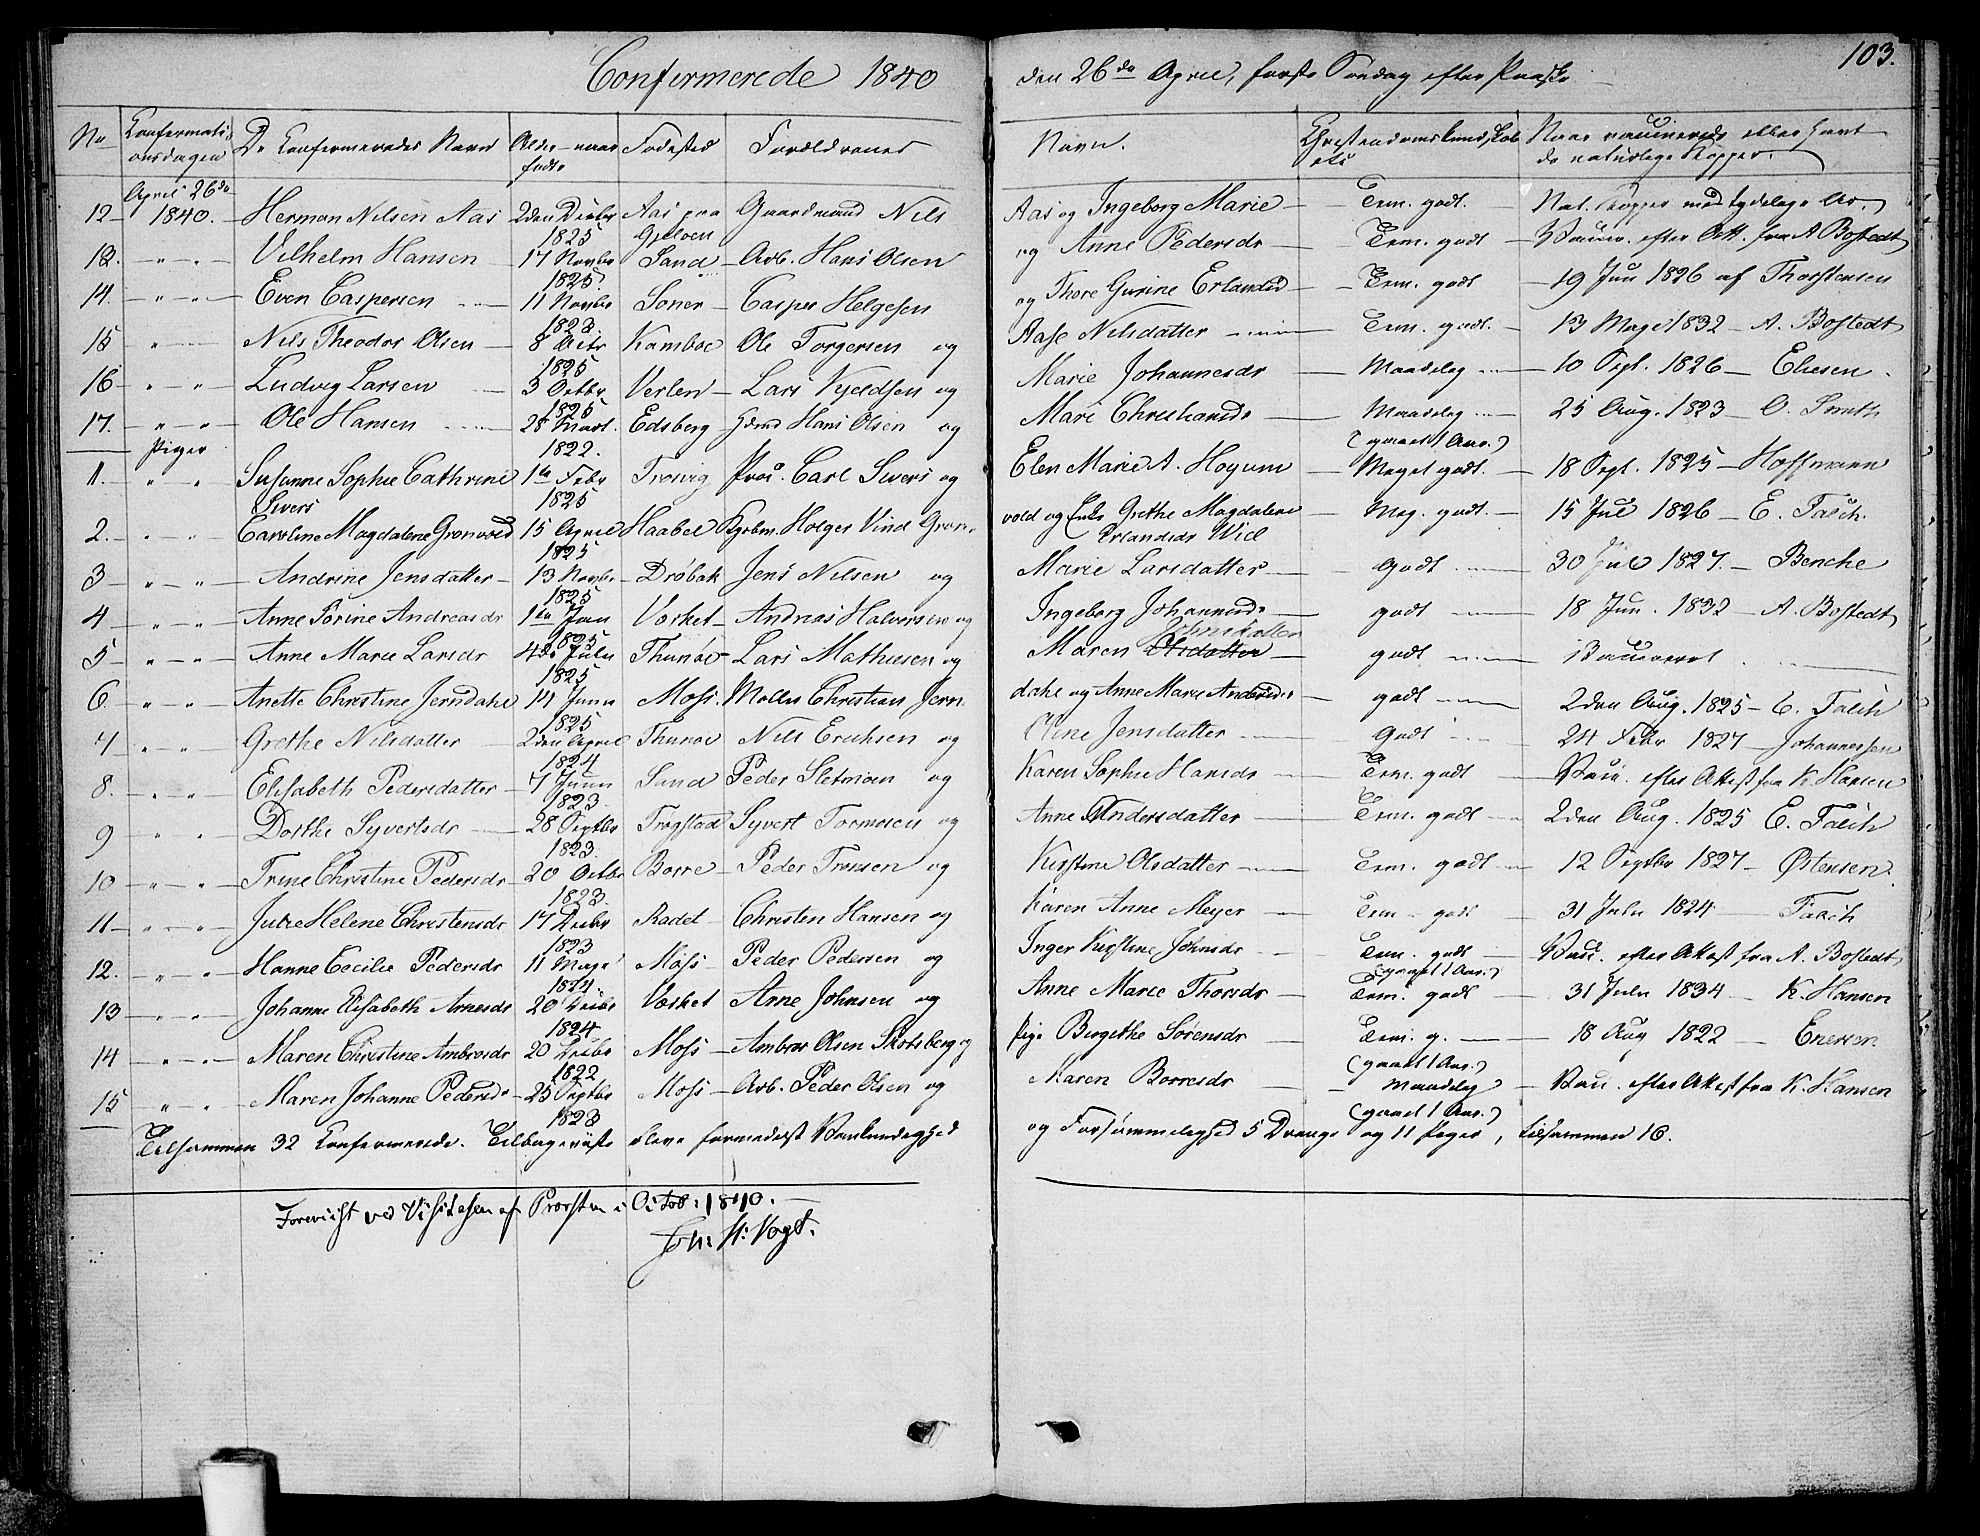 Confermerede 1840 den 26de April, første Søndag efter Paaske 103.
No Konfermati- onsdagen De Konfermeredes Navn Alder - naar fødte Fødested Forældrenes Navn. Christendomskundskab Naar vaccinerede eller havt de naturlige Kopper.
April 26de
12 1840. Herman Nilsen Aas 2den Decbr 1825 Aas paa Gjeløen Gaardmand Nils Aas og Ingeborg Marie Tem. godt. Nat. Kopper med tydelige Ar.
13. " " Vilhelm Hansen 17 Novbr 1825. Sand Arb. Hans Olsen og Anne Pedersdr Tem. godt Vaccin. efter Att. fra A Bostedt
14. " " Even Caspersen 11 Novbr 1823. Soner Casper Helgesen og Thore Gurine Erlandsd Tem. godt 19 Jun 1826 af Thorstensen
15 " Nils Theodor Olsen 8 Octr 1825 Kamboe Ole Torgersen og Aase Nilsdatter Tem. godt. 13 Mage 1832 A. Bostedt
16 " " Ludvig Larsen 3 Octbr 1825 Verlen Lars Kjeldsen og Marie Johannesdr Maadelig 10 Sept. 1826 Eliesen
17. " " Ole Hansen 28 Mart. 1822. Edsberg Hans Olsen og Mari Christiansdr Maadelig 25 Aug. 1823 O. Smith
Piger (gaaet 1 Aar.)
1. " " Susanne Sophie Cathrine Sivers 1te Febr 1825 Carl Sivers og Elen Marie A. Hoyum Meget godt. 18 Sept. 1825 Hoffmann
2. " " Caroline Magdalene Grønvold 15 April 1825 Haabel Holger Vind Grøn- vold og Grethe Magdalene Erlandsdr Wiel Meg. godt. 15 Jul 1826 E. Fasch.
3 " " Andrine Jensdatter 13 Novbr 1825 Drøbak Jens Nilsen og Marie Larsdatter Godt 30 Jul 1827. Benche
4 " " Anne Torine Andreasdr 1te Jan 1825 Vorket Andreas Halversen og Ingeborg Johannesdr godt 18 Jun. 1832 A. Bostedt
5 " " Anne Marie Larsdr 4de Julii 1825 Thunøe Lars Mathiesen og Maren Olsdatter Johnsdatter godt Vaccineret
6. " " Anette Christine Jerndahl 14 Junii 1825 Moss. Møller Christian Jern- dahl og Anne Marie Andersdr godt 2den Aug. 1825 E. Falch
7 " " Grethe Nilsdatter 2den April 1824 Thunøe Nils Erichsen og Oline Jensdatter Godt 24 Febr 1827 Johannessen
8. " " Elisabeth Pedersdatter 7 Junii 1823. Sand Peder Sletmoen og Karen Sophie Hansdr Tem. godt Vacc. efter Attest fra K. Hansen
9 " " Dorthe Syvertsdr 28 Septbr 1823. Trøgstad Syvert Tormosen og Anne Andersdatter Tem. godt 2den Aug. 1825 E. Falch
10 " " Trine Christine Pedersdr 20 Octbr 1823. Borre Peder Tronsen og Kirstine Olsdatter Tem. godt 12 Septbr 1827 Østensen.
11 " " Julie Helene Christensdr 17 Decbr 1823 Radet Christen Hansen og Karen Anne Meyer Tem. godt 31 Julii 1824 Fasch
12. " " Hanne Cecilie Pedersdr 11 Maji 1824. Moss Peder Pedersen og Inger Kirstine Johnsdr Tem. godt (gaaet 1 Aar.) Vacc. efter Attest fra A. Bostedt
13 " " Johanne Elisabeth Arnesdr 20 Decbr 1824 Vorket Arne Johnsen og Anne Marie Thorsdr Tem. godt 31 Julii 1834 K. Hansen
14 " " Maren Christine Ambrosdr 20 Decbr 1822 Moss Ambros Olsen Skotsberg og Pige Birgethe Sørensdr Tem. g. (gaaet 1 Aar.) 18 Aug 1822 Enersen.
15 " " Maren Johanne Pedersdr 25 Septbr 1823 Moss Arb. Peder Olsen og Maren Borresdr maadelig (gaaet 1 Aar.) Vacc. efter Attest fra K. Hansen
Tilsammen 32 Konfermerede. Tilbageviiste bleve formedelst Vankundighed og Forsømmelighed 5 Drenge og 11 Piger, tilsammen 16.
Foreviist ved Visitasen af Provsten i Octob: 1840.
Joh. H: Vogt.